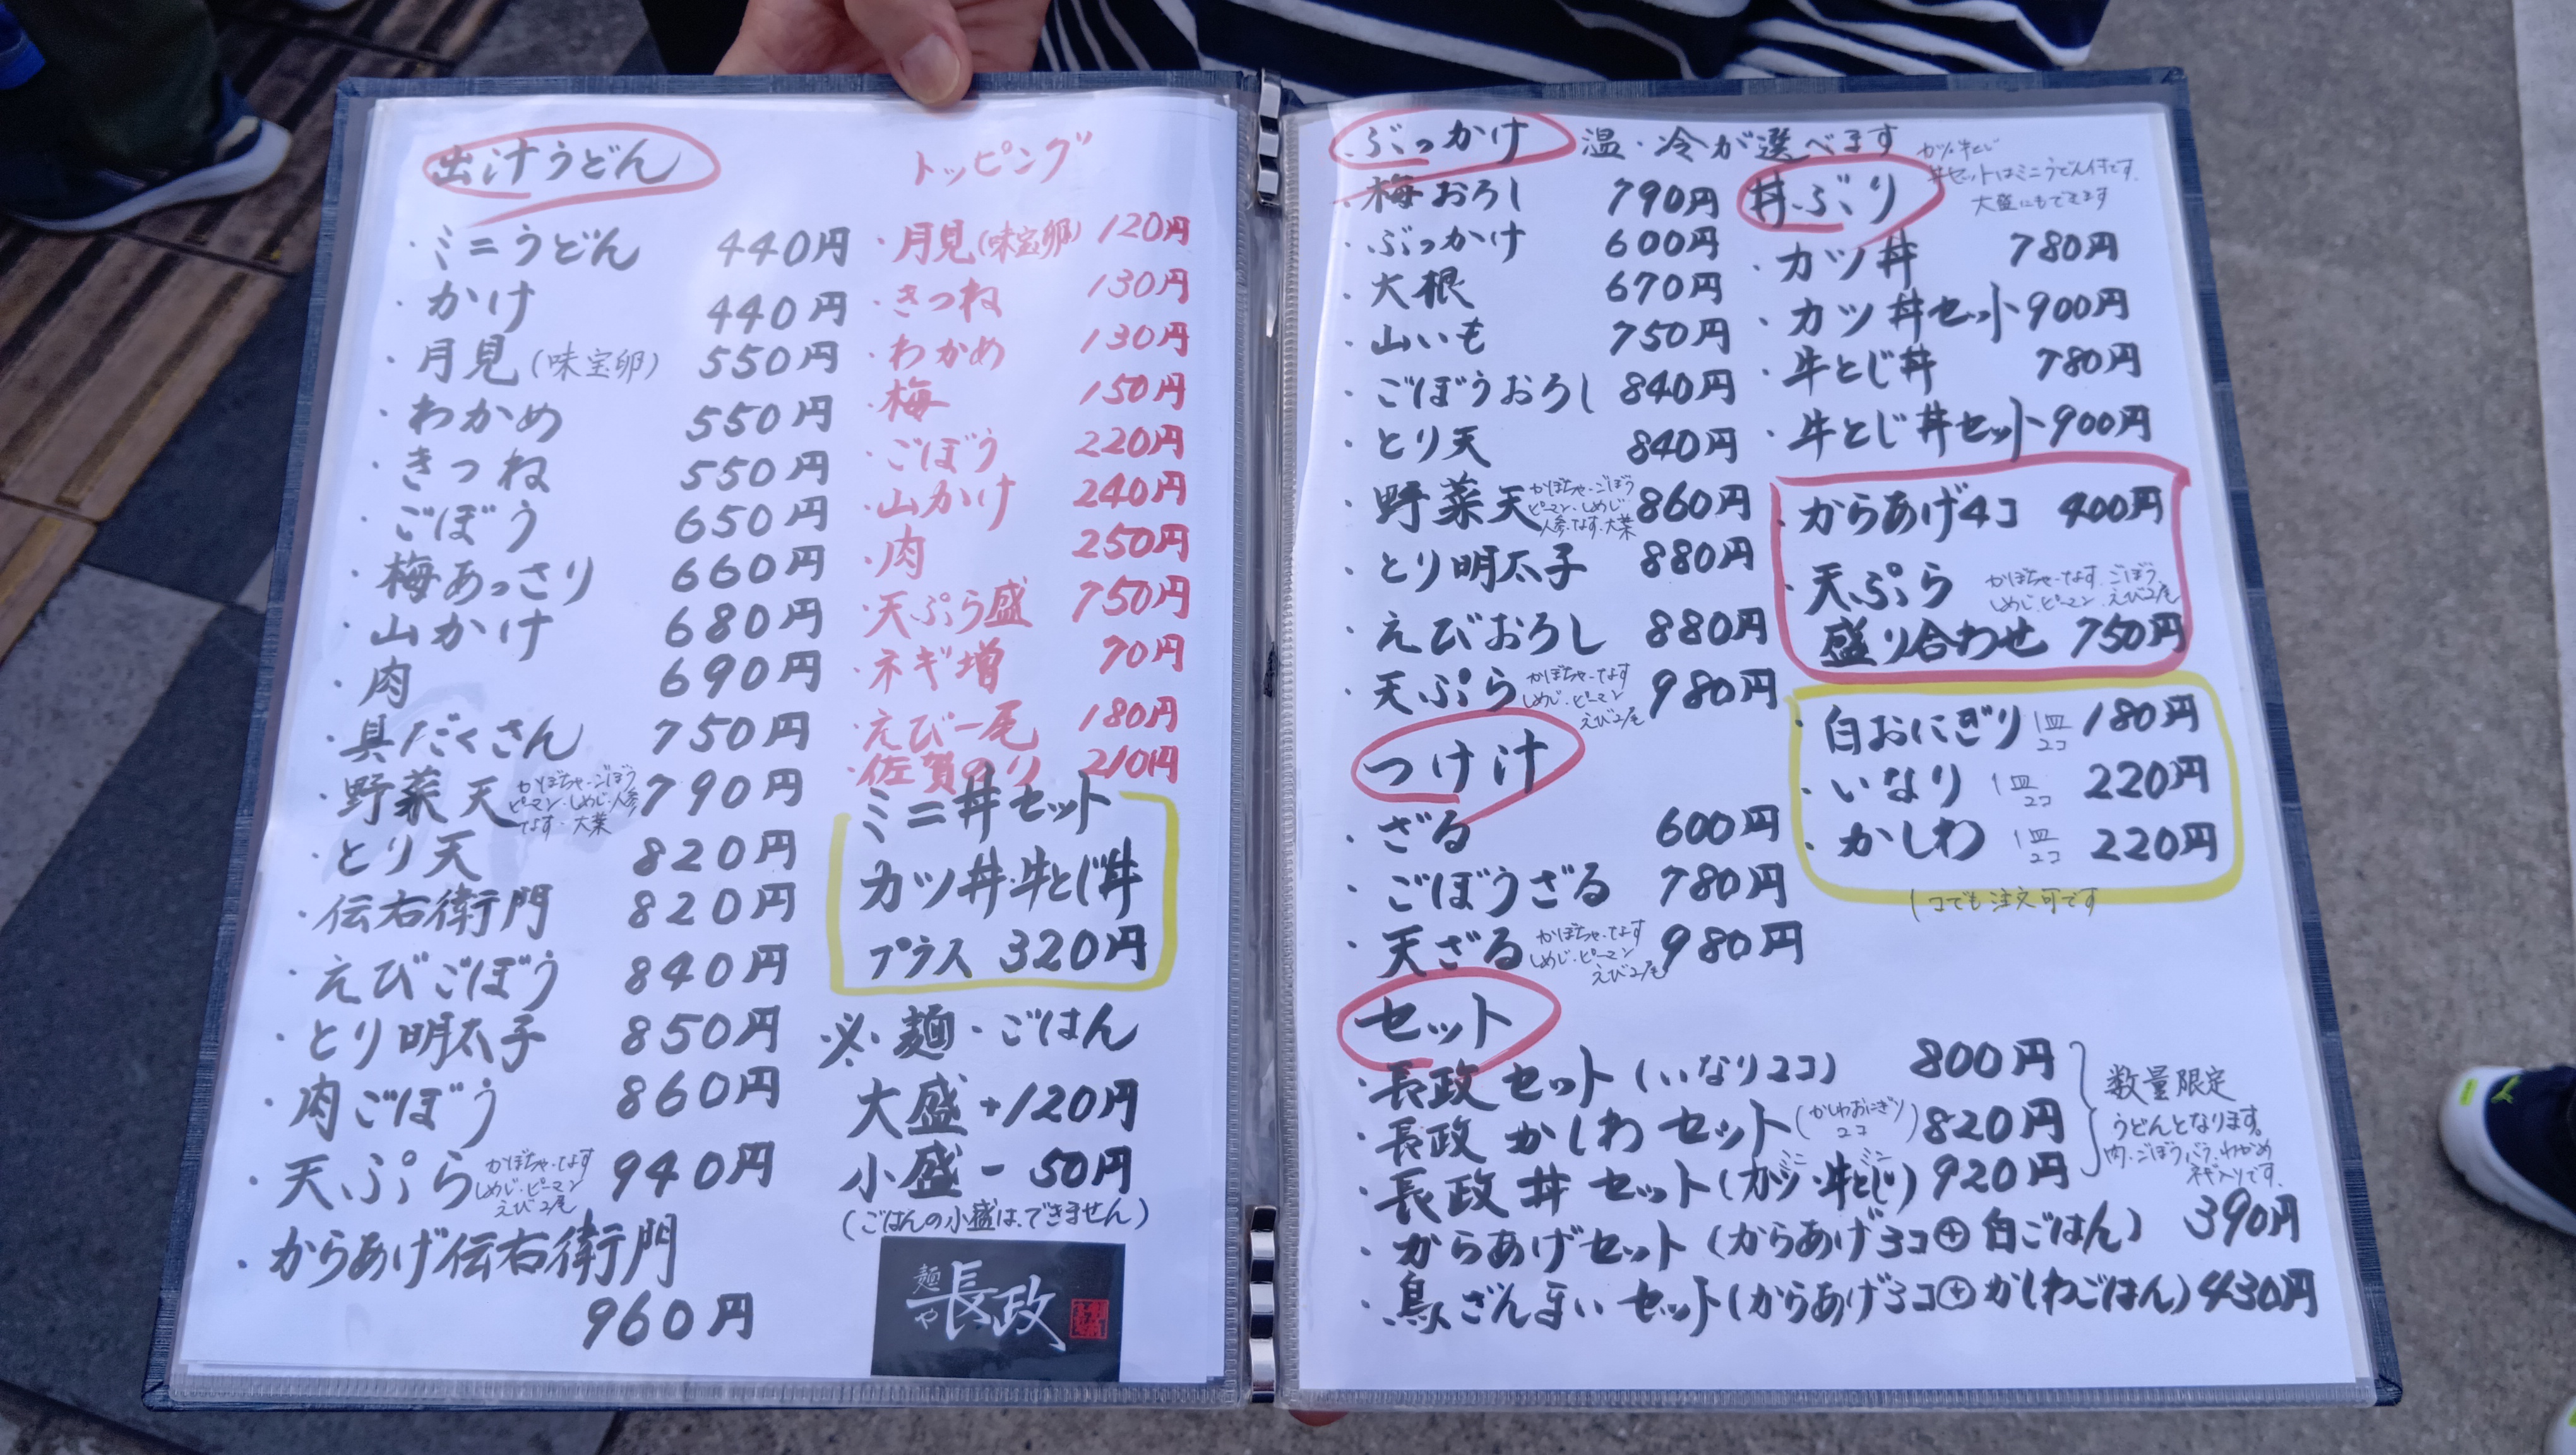 出汁うどん
・ミニうどん 440円
・かけ 440円
・月見(味宝卵) 550円
・わかめ 550円
・きつね 550円
・ごぼう 650円
・梅あっさり 660円
・山かけ 680円
・肉 690円
・具だくさん 750円
・野菜天 かぼちゃ・ごぼう ピーマン・しめじ・人参 なす・大葉 790円
・とり天 820円
・伝右衛門 820円
・えびごぼう 840円
・とり明太子 850円
・肉ごぼう 860円
・天ぷら かぼちゃ・なす しめじ・ピーマン えび2尾 940円
・からあげ伝右衛門
960円
トッピング
・月見(味宝卵) 120円
・きつね 130円
・わかめ 130円
・梅 150円
・ごぼう 220円
・山かけ 240円
・肉 250円
・天ぷら盛 750円
・ネギ増 70円
・えび一尾 180円
・佐賀のり 210円
ミニ丼セット
カツ丼・牛とじ丼
プラス 320円
※麺・ごはん
大盛+120円
小盛-50円
(ごはんの小盛は、できません)
麺や長政
ぶっかけ 温・冷が選べます
・梅おろし 790円
・ぶっかけ 600円
・大根 670円
・山いも 750円
・ごぼうおろし 840円
・とり天 840円
・野菜天 かぼちゃ・ごぼう ピーマン・しめじ・ 人参・なす・大葉 860円
・とり明太子 880円
・えびおろし 880円
・天ぷら かぼちゃ・なす しめじ・ピーマン えび2尾 980円
つけ汁
・ざる 600円
・ごぼうざる 780円
・天ざる かぼちゃ・なす しめじ・ピーマン えび2尾 980円
丼ぶり
カツ・牛とじ
丼セットはミニうどん付です。
大盛にもできます
・カツ丼 780円
・カツ丼セット 900円
・牛とじ丼 780円
・牛とじ丼セット 900円
・からあげ4コ 400円
・天ぷら かぼちゃ・なす・ごぼう しめじ・ピーマン・えび2尾
盛り合わせ 750円
・白おにぎり 1皿2コ 180円
・いなり 1皿2コ 220円
・かしわ 1皿2コ 220円
1コでも注文可です
セット
・長政セット(いなり2コ) 800円
・長政かしわセット(かしわおにぎり2コ) 820円
・長政丼セット(ミニカツ・ミニ牛とじ) 920円
数量限定
うどんとなります。
肉・ごぼうバラ・わかめ
ネギ入りです。
・からあげセット(からあげ3コ⊕白ごはん) 390円
・鳥ざんまいセット(からあげ3コ⊕かしわごはん) 430円